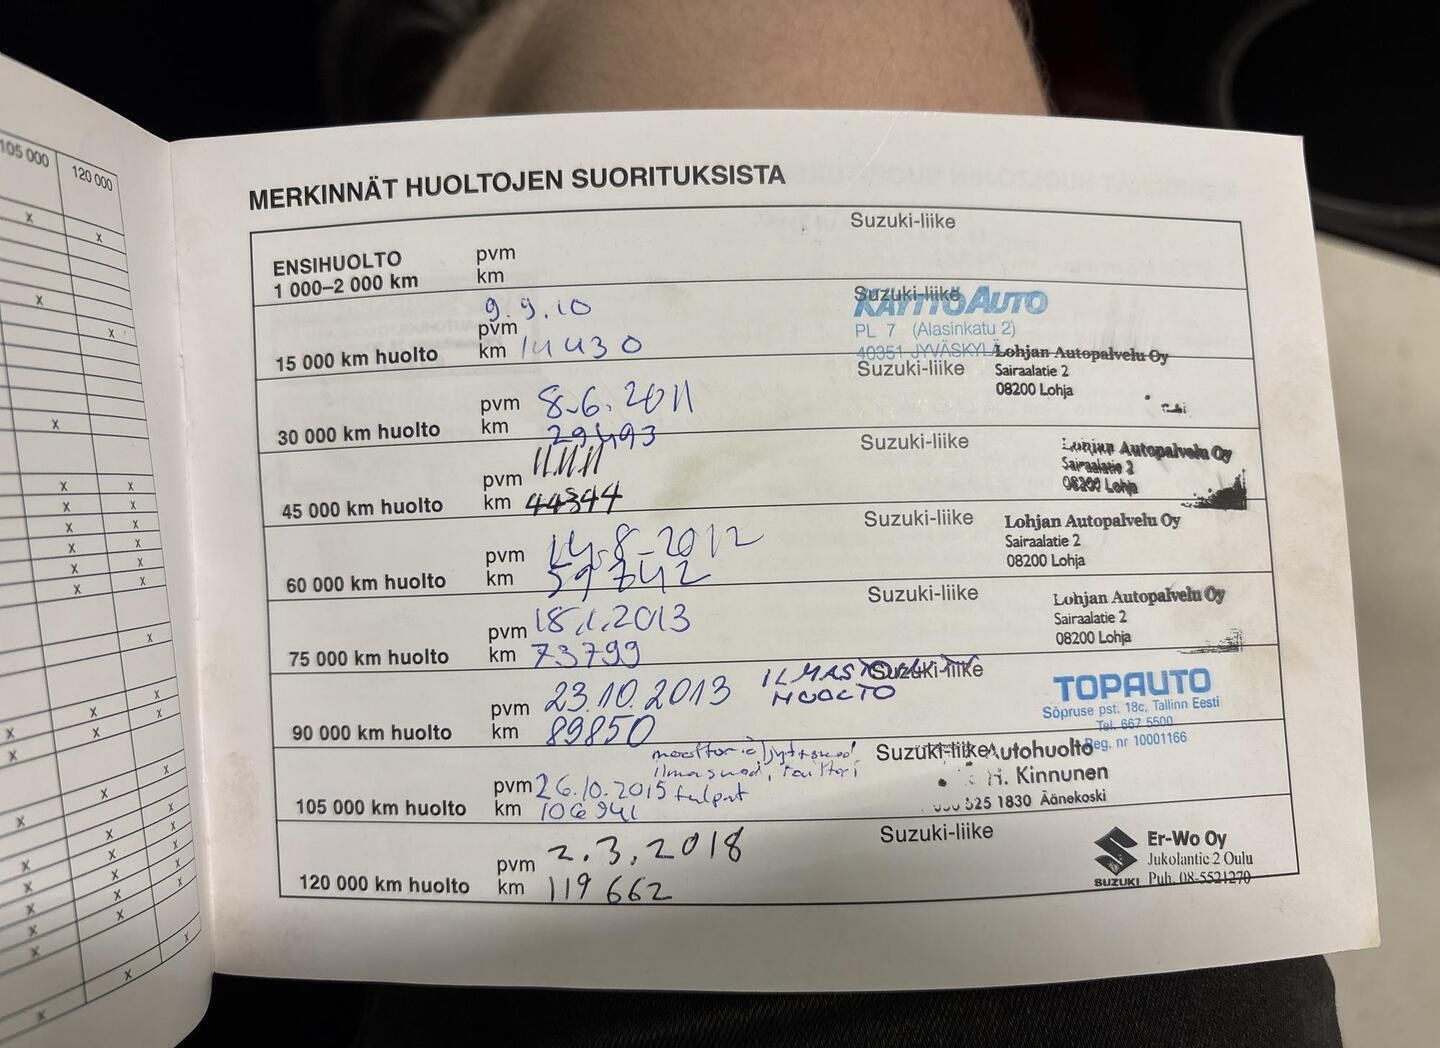 105 000
120 000
MERKINNÄT HUOLTOJEN SUORITUKSISTA
ENSIHUOLTO
1 000–2 000 km
pvm
km
Suzuki-liike
15 000 km huolto
pvm 9.9.10
km 14430
Suzuki-liike
KÄYTTÖAUTO
PL 7 (Alasinkatu 2)
40351 JYVÄSKYLÄ
30 000 km huolto
pvm 8.6.2011
km 29493
Suzuki-liike
Lohjan Autopalvelu Oy
Sairaalatie 2
08200 Lohja
45 000 km huolto
pvm
km 44344
Suzuki-liike
Lohjan Autopalvelu Oy
Sairaalatie 2
08200 Lohja
60 000 km huolto
pvm 14.8-2012
km 59742
Suzuki-liike
Lohjan Autopalvelu Oy
Sairaalatie 2
08200 Lohja
75 000 km huolto
pvm 18.1.2013
km 73799
Suzuki-liike
Lohjan Autopalvelu Oy
Sairaalatie 2
08200 Lohja
90 000 km huolto
pvm 23.10.2013
km 89850
ILMASTOINTI
HUOLTO
Suzuki-liike
TOPAUTO
Sõpruse pst. 18c, Tallinn Eesti
Tel. 667 5500
Reg. nr 10001166
105 000 km huolto
ilmasuod, raittari
pvm 26.10.2015 tulpat
km 106941
Suzuki-liike
Autohuolto
H. Kinnunen
1830 Äänekoski
120 000 km huolto
pvm 2.3.2018
km 119662
Suzuki-liike
SUZUKI
Er-Wo Oy
Jukolantie 2 Oulu
Puh. 08-5521270